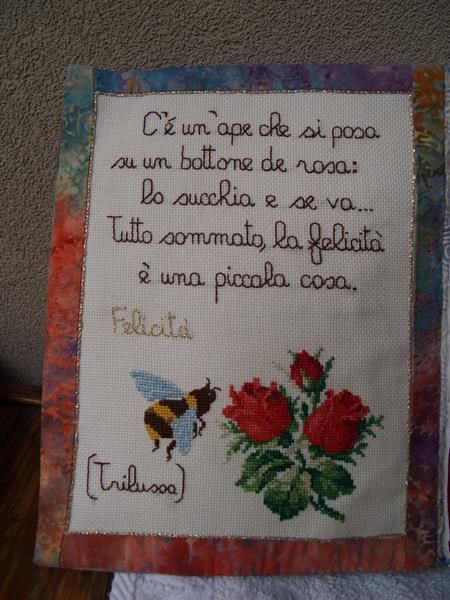 C'é un'ape che si posa
su un bottone de rosa:
lo succhia e se va...
Tutto sommato, la felicità
è una piccola cosa.
Felicità
(Trilussa)